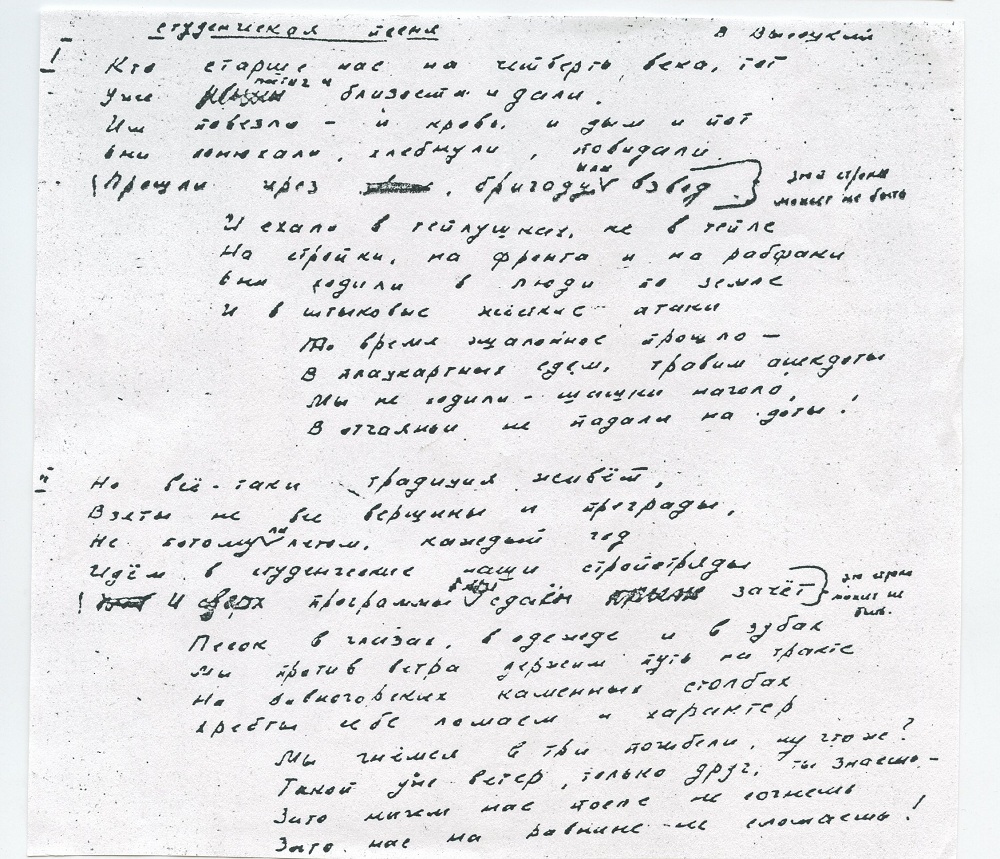 студенческая песня
В Высоцкий
I
Кто старше нас на четверть века, тот
Уже постиг и близости и дали,
Им повезло - и кровь, и дым и пот
Они понюхали, хлебнули, повидали
(Прошли чрез , бригаду или взвод
эта строка
может не быть
И ехали в теплушках, не в тепле
На стройки, на фронта и на рабфаки
Они ходили в люди по земле
И в штыковые жёсткие атаки
То время эшелонное прошло -
В плацкартных едем, травим анекдоты
Мы не ходили - шашки наголо,
В отчаяньи не падали на доты!
II
Но всё-таки традиция живёт,
Взяты не все вершины и преграды,
Не потому ли летом, каждый год
Идём в студенческие наши стройотряды
( И сверх программы мы сдаём зачёт
эта строка
может не
быть.
Песок в глазах, в одежде и в зубах
Мы против ветра держим путь на тракте
На дивногорских каменных столбах
Хребты себе ломаем и характер
Мы гнёмся в три погибели, ну что же?
Такой уже ветер, только друг, ты знаешь -
Зато ничем нас после не согнешь
Зато нас на равнине не сломаешь!